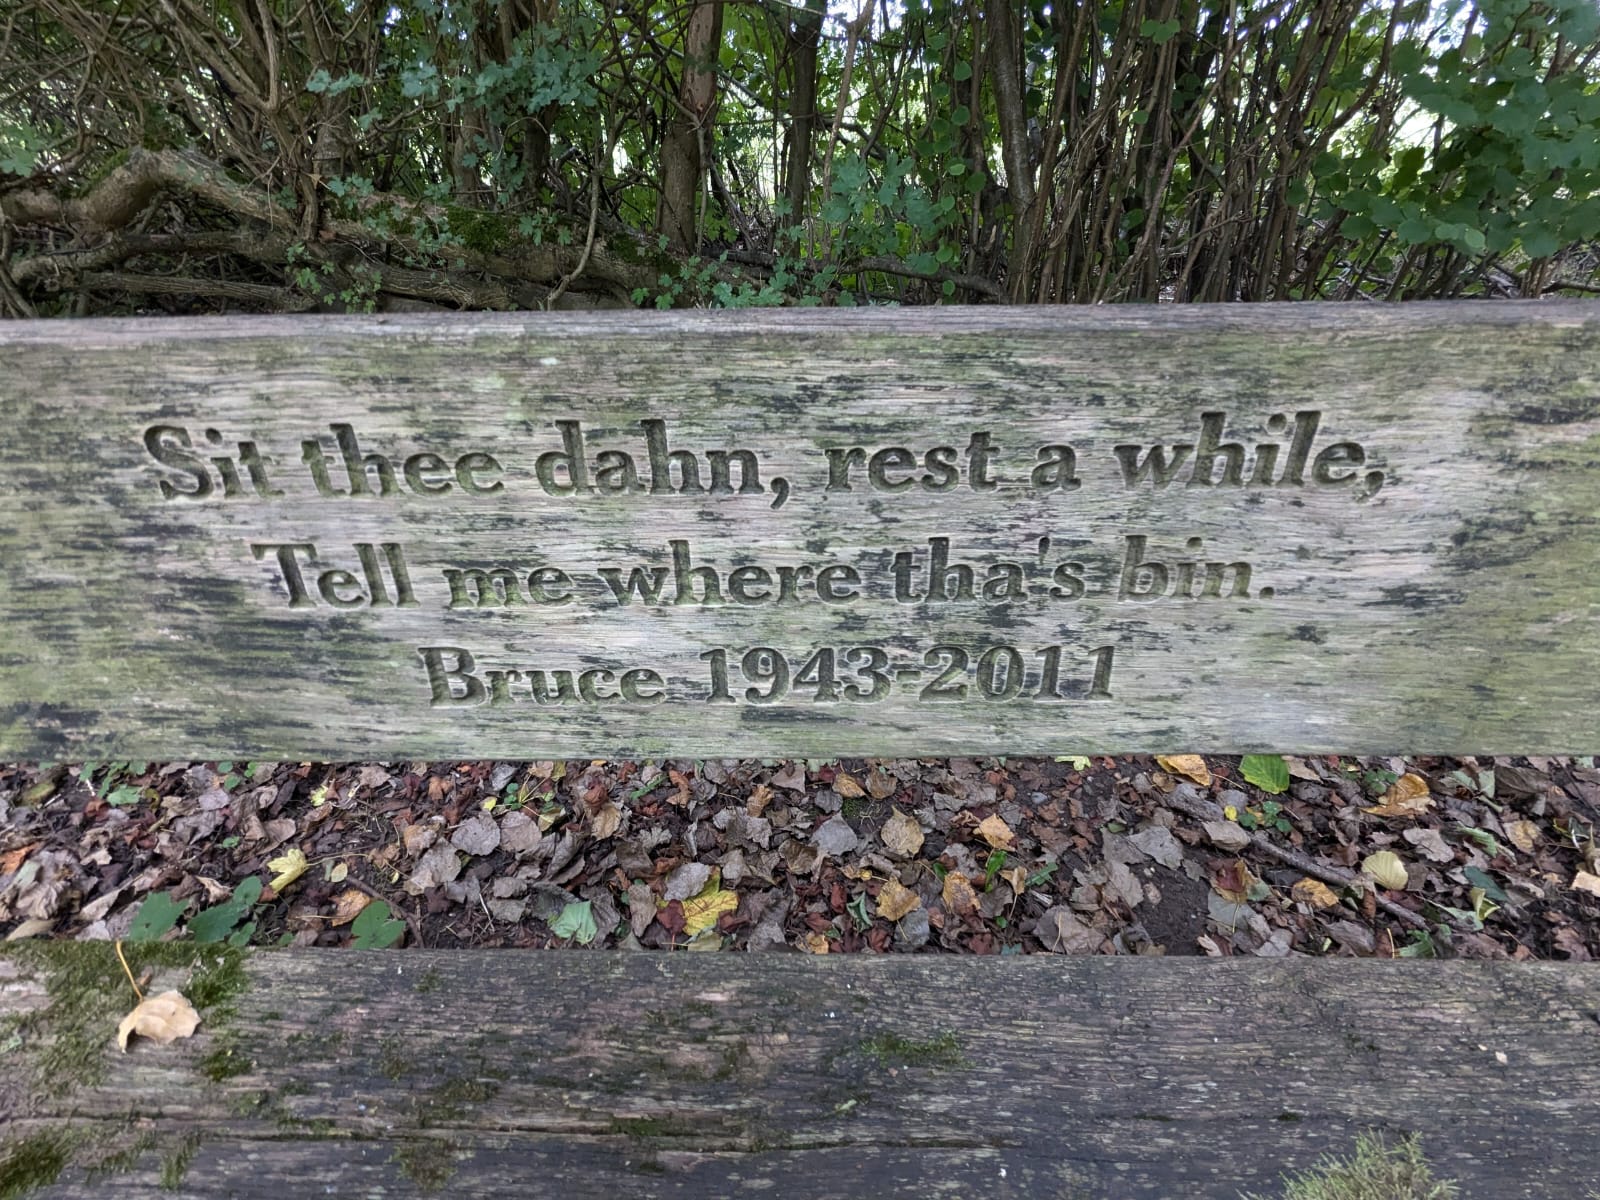 Sit thee dahn, rest a while,
Tell me where tha's bin.
Bruce 1943-2011